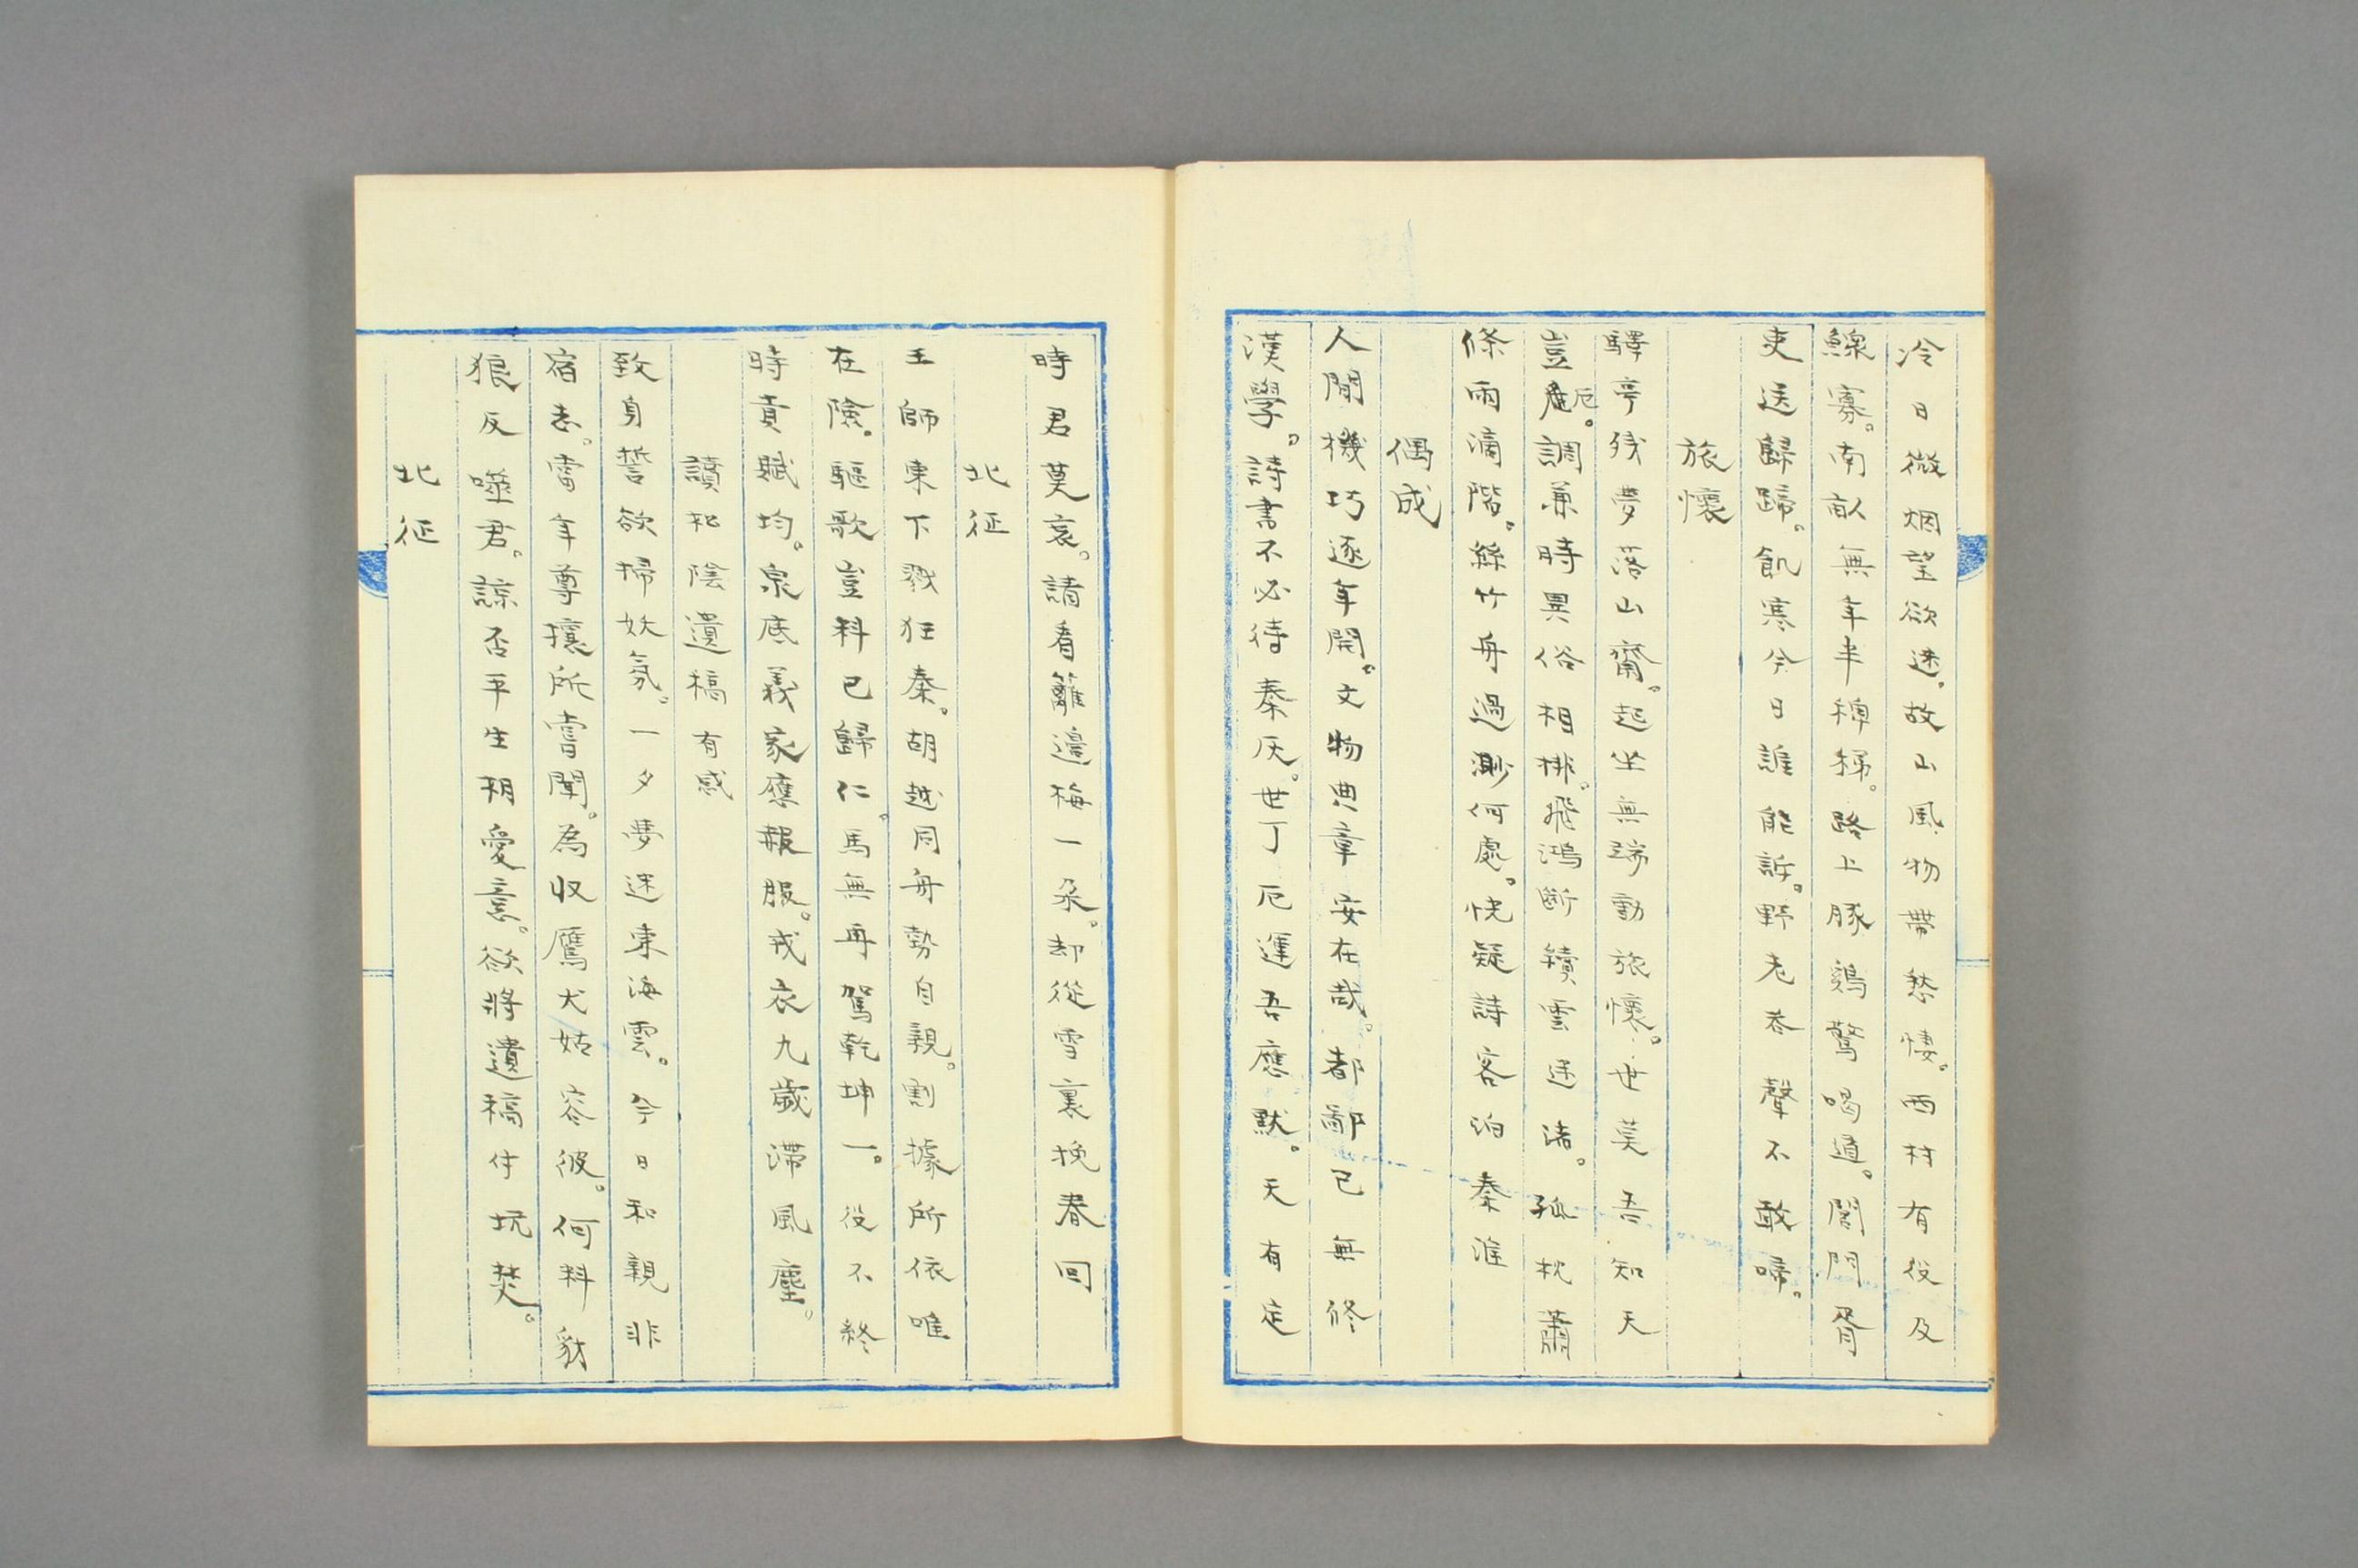 冷日微烟望欲迷。故山風物帶愁悽。西村有役及
鰥寡。南畝無年半稗稊。路上豚鷄驚喝道。閭門胥
吏送歸蹄。飢寒今日誰能訴。野老吞聲不敢啼。
旅懷
驛亭殘夢落山齋。起坐無端動旅懷。世莫吾知天
豈厄。調兼時異俗相排。飛鴻斷續雲迷渚。孤枕蕭
條雨滴階。絲竹舟過渺何處。恍疑詩客泊秦淮
偶成
人間機巧逐年開。文物典章安在哉。都鄙已無修
漢學。詩書不必待秦灰。世丁厄運吾應默。天有定
時君莫哀。請看籬邊梅一朶。却從雪裏挽春回
北征
王師東下戮狂秦。胡越同舟勢自親。割據所依唯
在險。驅歌豈料已歸仁。馬無再駕乾坤一。役不終
時貢賦均。泉底義家應報服。戎衣九歲滯風塵。
讀松陰遺稿有感
致身誓欲掃妖氛。一夕夢迷東海雲。今日和親非
宿志。當年尊攘所嘗聞。為収鷹犬姑容彼。何料豺
狼反噬君。諒否平生相愛意。欲將遺稿付坑焚。
北征